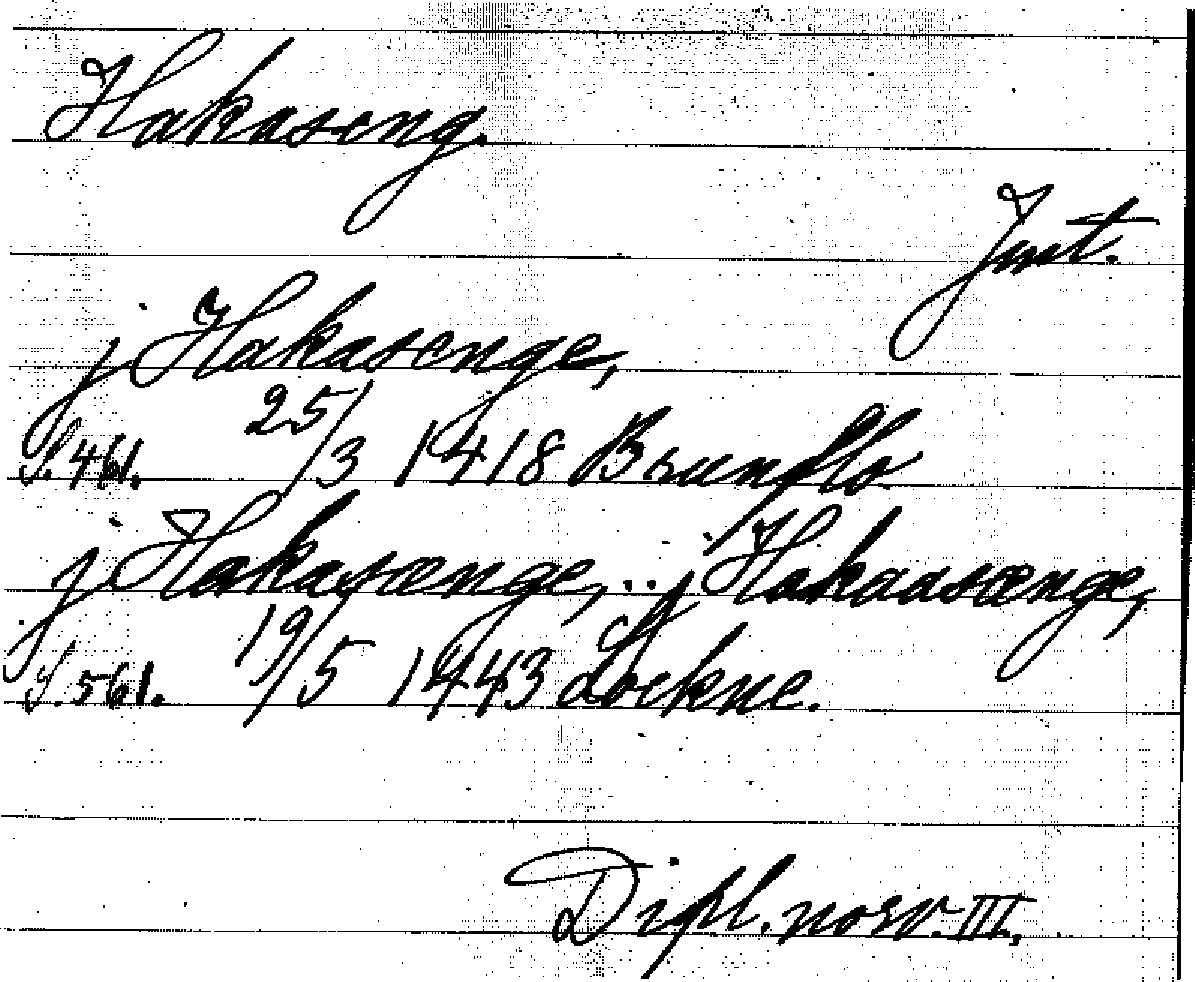 Hakaseng.
Jmt.
j Hakasenge,
S. 461. 25/3 1418 Brunflo
j Hakasænge, .. j Hakaasænge,
S. 561. 19/5 1443 Lockne.
Dipl. norv. III.